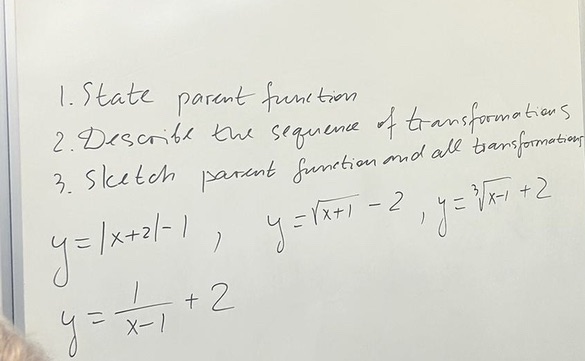 1. State parent function
2. Describe the sequence of transformations
3. Sketch parent function and all transformations
y = |x+2| - 1 , y = √(x+1) - 2 , y = ∛(x-1) + 2
y = 1/(x-1) + 2